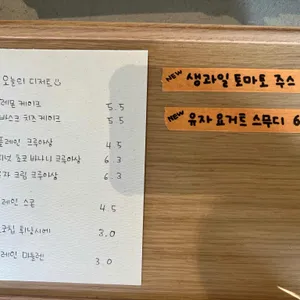 오늘의 디저트
케이크 5.5
바스크 치즈 케이크 5.5
플레인 크로아상 4.5
초코 바나나 크로아상 6.3
크림 크로아상 6.3
스콘 4.5
휘낭시에 3.0
마들렌 3.0
NEW 생과일 토마토 주스
NEW 유자 요거트 스무디 6